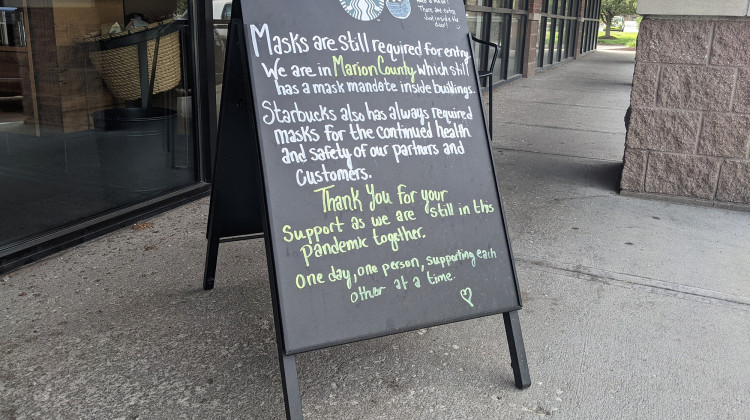 There are extra
Just inside the
door!
Masks are still required for entry.
We are in Marion County which still
has a mask mandate inside buildings.
Starbucks also has always required
masks for the continued health
and safety of our partners and
Customers.
Thank You for your
Support as we are still in this
pandemic together.
One day, one person, supporting each
other at a time.